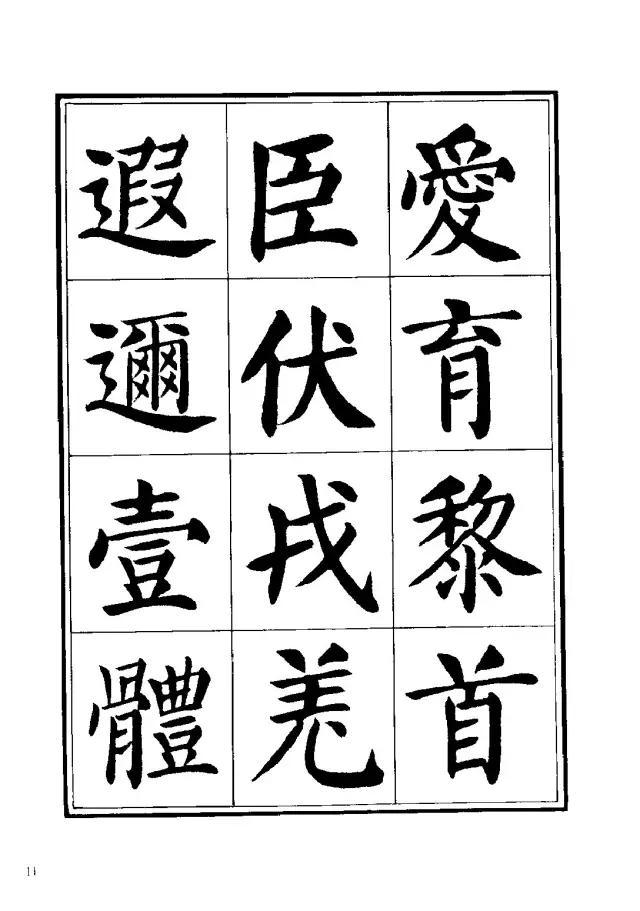 愛育黎首
臣伏戎羌
遐邇壹體
11